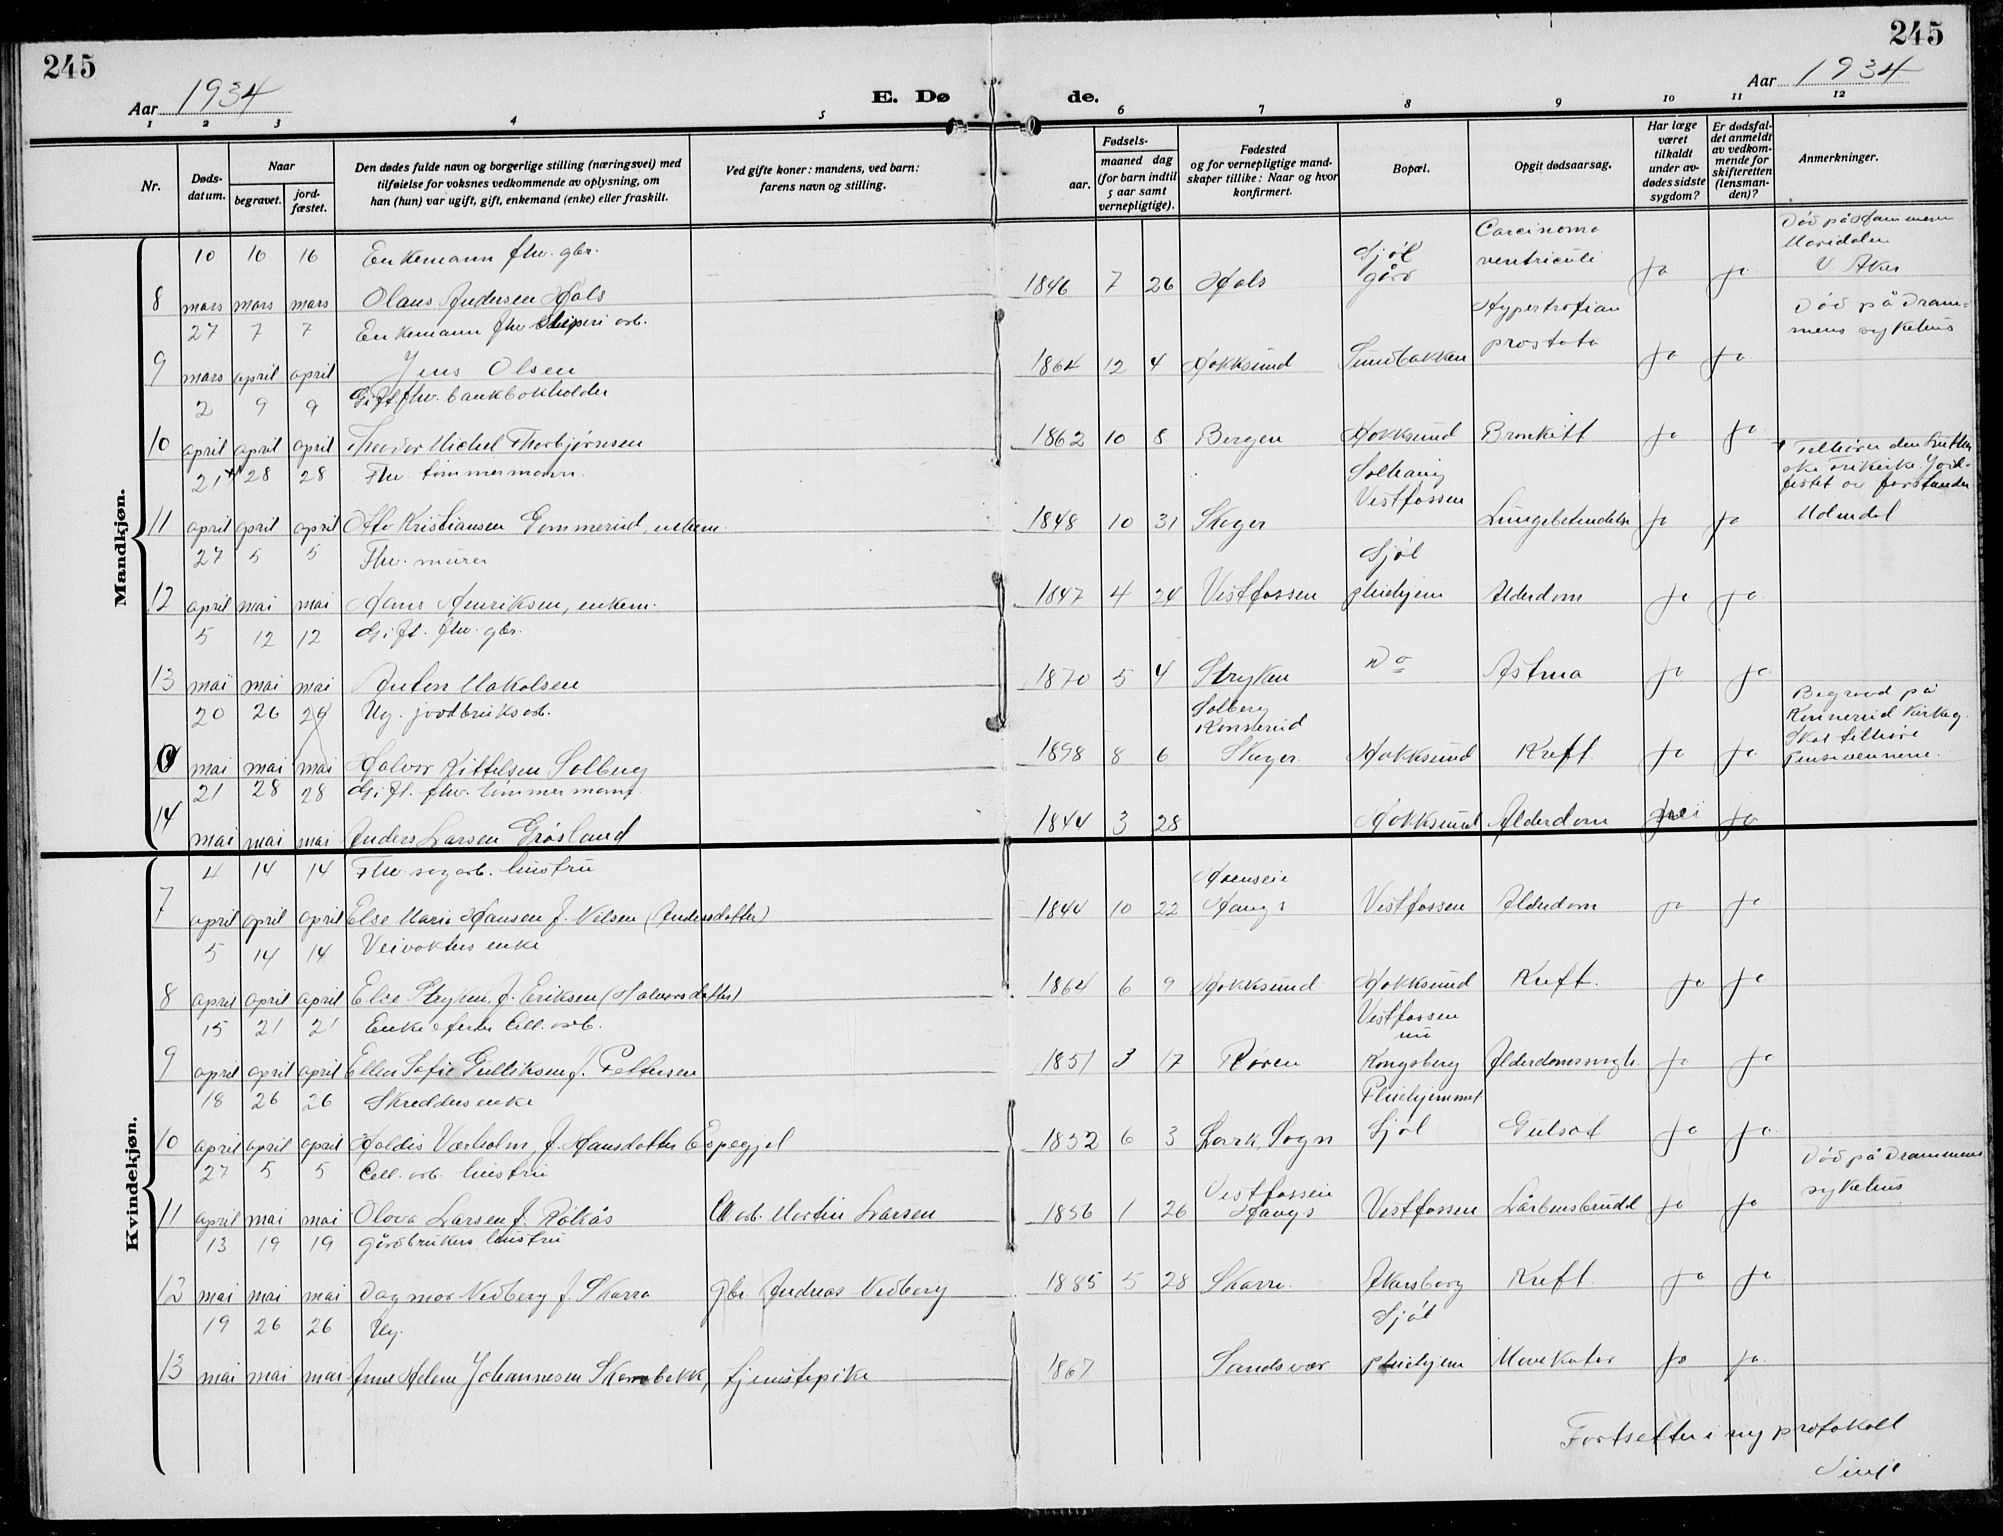 245
245
Aar 1934
E. Dø
de.
Aar 1934
1 2 3 4 5 6 7 8 9 10 11 12
Nr.
Døds-
datum.
Naar
begravet.
jord-
fæstet.
Den dødes fulde navn og borgerlige stilling (næringsvei) med
tilføielse for voksnes vedkommende av oplysning, om
han (hun) var ugift, gift, enkemand (enke) eller fraskilt.
Ved gifte koner: mandens, ved barn:
farens navn og stilling.
Fødsels-
aar.
maaned dag
(for barn indtil
5 aar samt
vernepligtige).
Fødested
og for vernepligtige mand-
skaper tillike: Naar og hvor
konfirmert.
Bopæl.
Opgit dødsaarsag.
Har læge
været
tilkaldt
under av-
dødes sidste
sygdom?
Er dødsfal-
det anmeldt
av vedkom-
mende for
skifteretten
(lensman-
den)?
Anmerkninger.
Mandkjøn.
10 16 16 Enkemann fhv. gbr. Sjøl Carcinoma Død på Hammeren
Maridalen
8 mars mars mars Olaus Andersen Hals 1846 7 26 Hals gård ventriculi ja ja V. Aker
27 7 7 Enkemann fhv. sliperi arb. Hypertrofian Død på Dram-
9 mars april april Jens Olsen 1864 12 4 Hokksund Sundbakken prostata ja ja mens sykehus
2 9 9 Gift. fhv. bankbokholder
10 april april april Teodor Michel Thorbjørnsen 1862 10 8 Bergen Hokksund Bronkitt ja ja
21 28 28 Fhv. tømmermann. Solhaug Tilhører den Luther
ske Frikirke. Jord-
festet av forstander
11 april april april Otto Kristiansen Gommerud, enkem. 1848 10 31 Skoger Vestfossen Lungebetendelse ja ja Holmdal
27 5 5 Fhv. murer Sjøl
12 april mai mai Hans Henriksen, enkem. 1847 4 24 Vestfossen pleiehjem Alderdom ja ja
5 12 12 Gift. fhv. gbr.
13 mai mai mai Anton Hakalsen 1870 5 4 Stryken do Astma ja ja
20 26 26 Ug. jordbruksarb. Solberg Begravd på
Konnerud Konnerud kirkeg.
0 mai mai mai Halvor Kittelsen Solberg 1898 8 6 Skoger Hokksund Kreft ja ja Skal tilhøre
Pinsevennene.
21 28 28 Gift. fhv. tømmermann.
14 mai mai mai Anders Larsen Grøsland 1844 3 28 Hokksund Alderdom nei ja
Kvindekjøn.
4 14 14 Fhv. sagarb. hustru
7 april april april Else Marie Hansen f. Nilsen (Andersdatter) 1844 10 22 Haugs Vestfossen Alderdom ja ja
5 14 14 Veivokters enke
8 april april april Else Stryken f. Eriksen (Halvorsdatter) 1864 6 9 Hokksund Hokksund Kreft. ja ja
15 21 21 Enke efter Cell. arb. Vestfossen
nu
9 april april april Ellen Sofie Gulliksen f. Pettersen 1851 3 17 Røren Kongsberg Alderdomssvagh. ja ja
18 26 26 Skredders enke Pleiehjemmet
10 april april april Haldis Værholm, f. Hansdatter Espegjel 1852 6 3 Lark, Sogn Sjøl Gulsot ja ja
27 5 5 Cell. arb. hustru Vestfosseie Død på Drammens
11 april mai mai Olova Larsen f. Røkås Cell arb. Martin Larsen 1856 1 26 Haugs Vestfossen Lårbensbrudd ja ja sykehus
13 19 19 gårdbrukers hustru
12 mai mai mai Dagmar Nedberg f. Skarra gbr Andreas Nedberg 1885 5 28 Skarra. Akersborg Kreft. ja ja
19 26 26 Ug. Sjøl
13 mai mai mai Anne Helene Johannesen Skarrebekk, tjenestepike 1867 Sandsvær pleiehjem Mavekatar ja ja
Fortsetter i ny protokoll